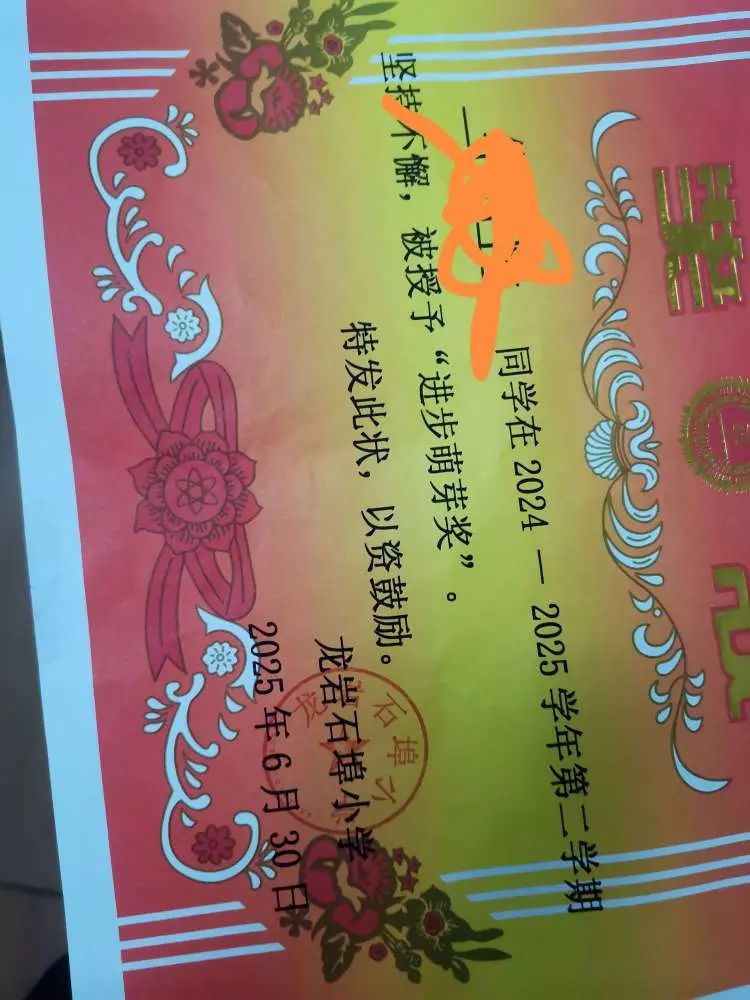 奖状
一 同学在2024—2025学年第二学期
坚持不懈，被授予“进步萌芽奖”。
特发此状，以资鼓励。
龙岩石埠小学
2025年6月30日
石埠小